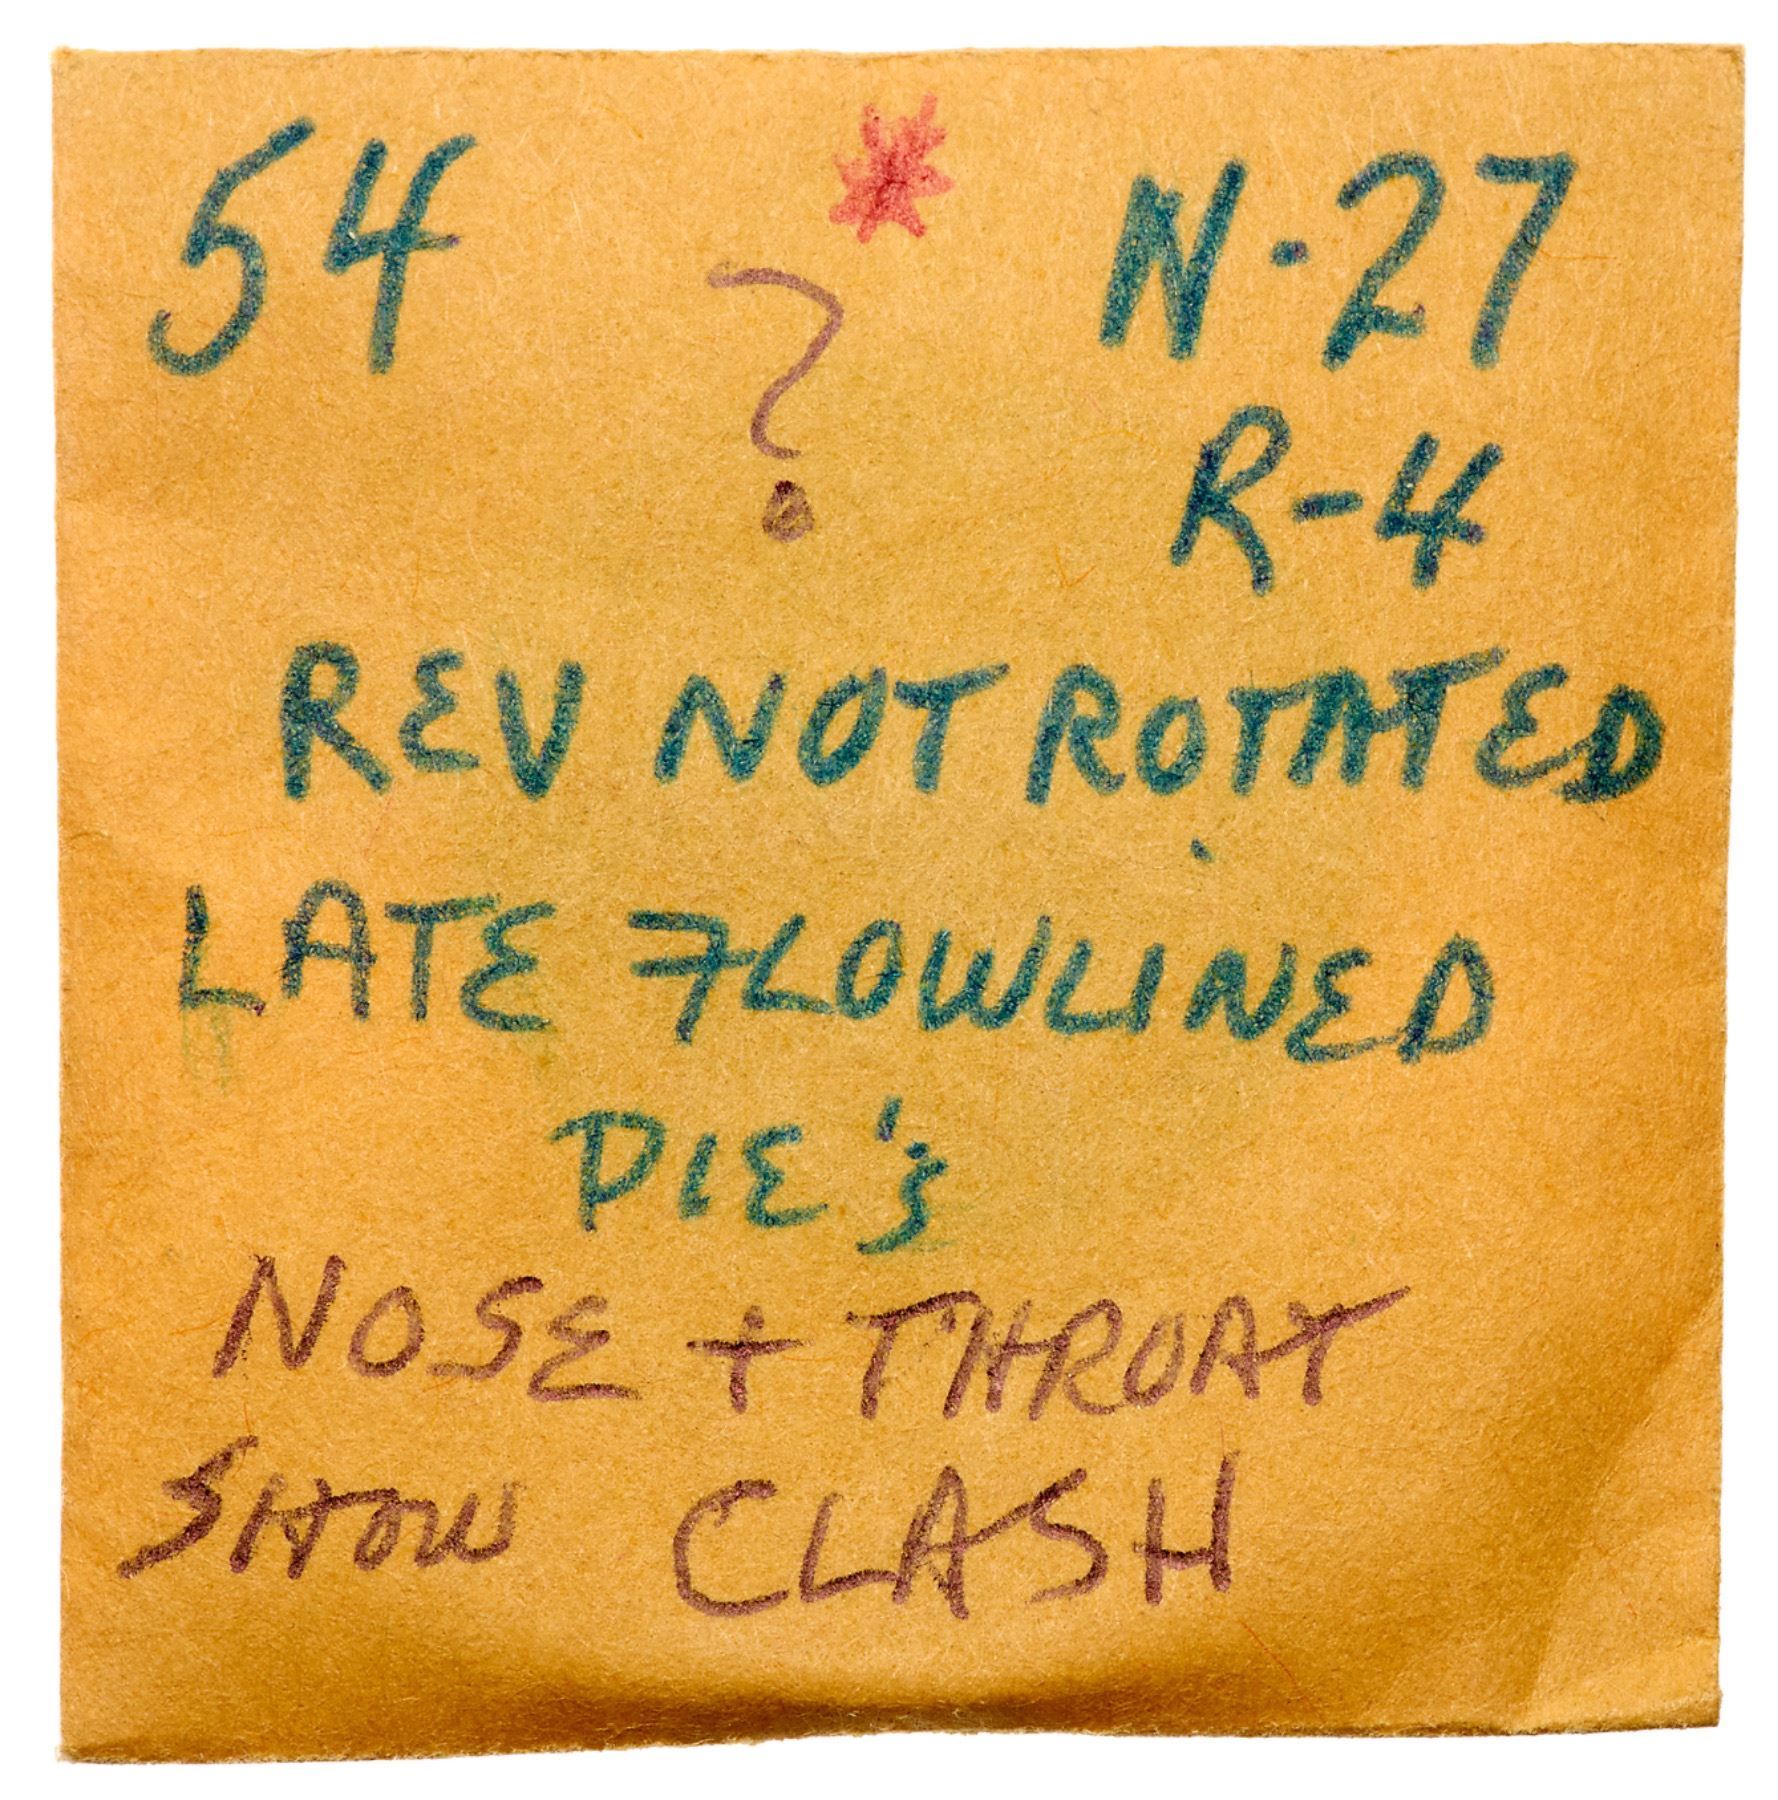 54 * N·27
?
R-4
REV NOT ROTATED
LATE FLOWLINED
DIE'S
NOSE + THROAT
SHOW CLASH